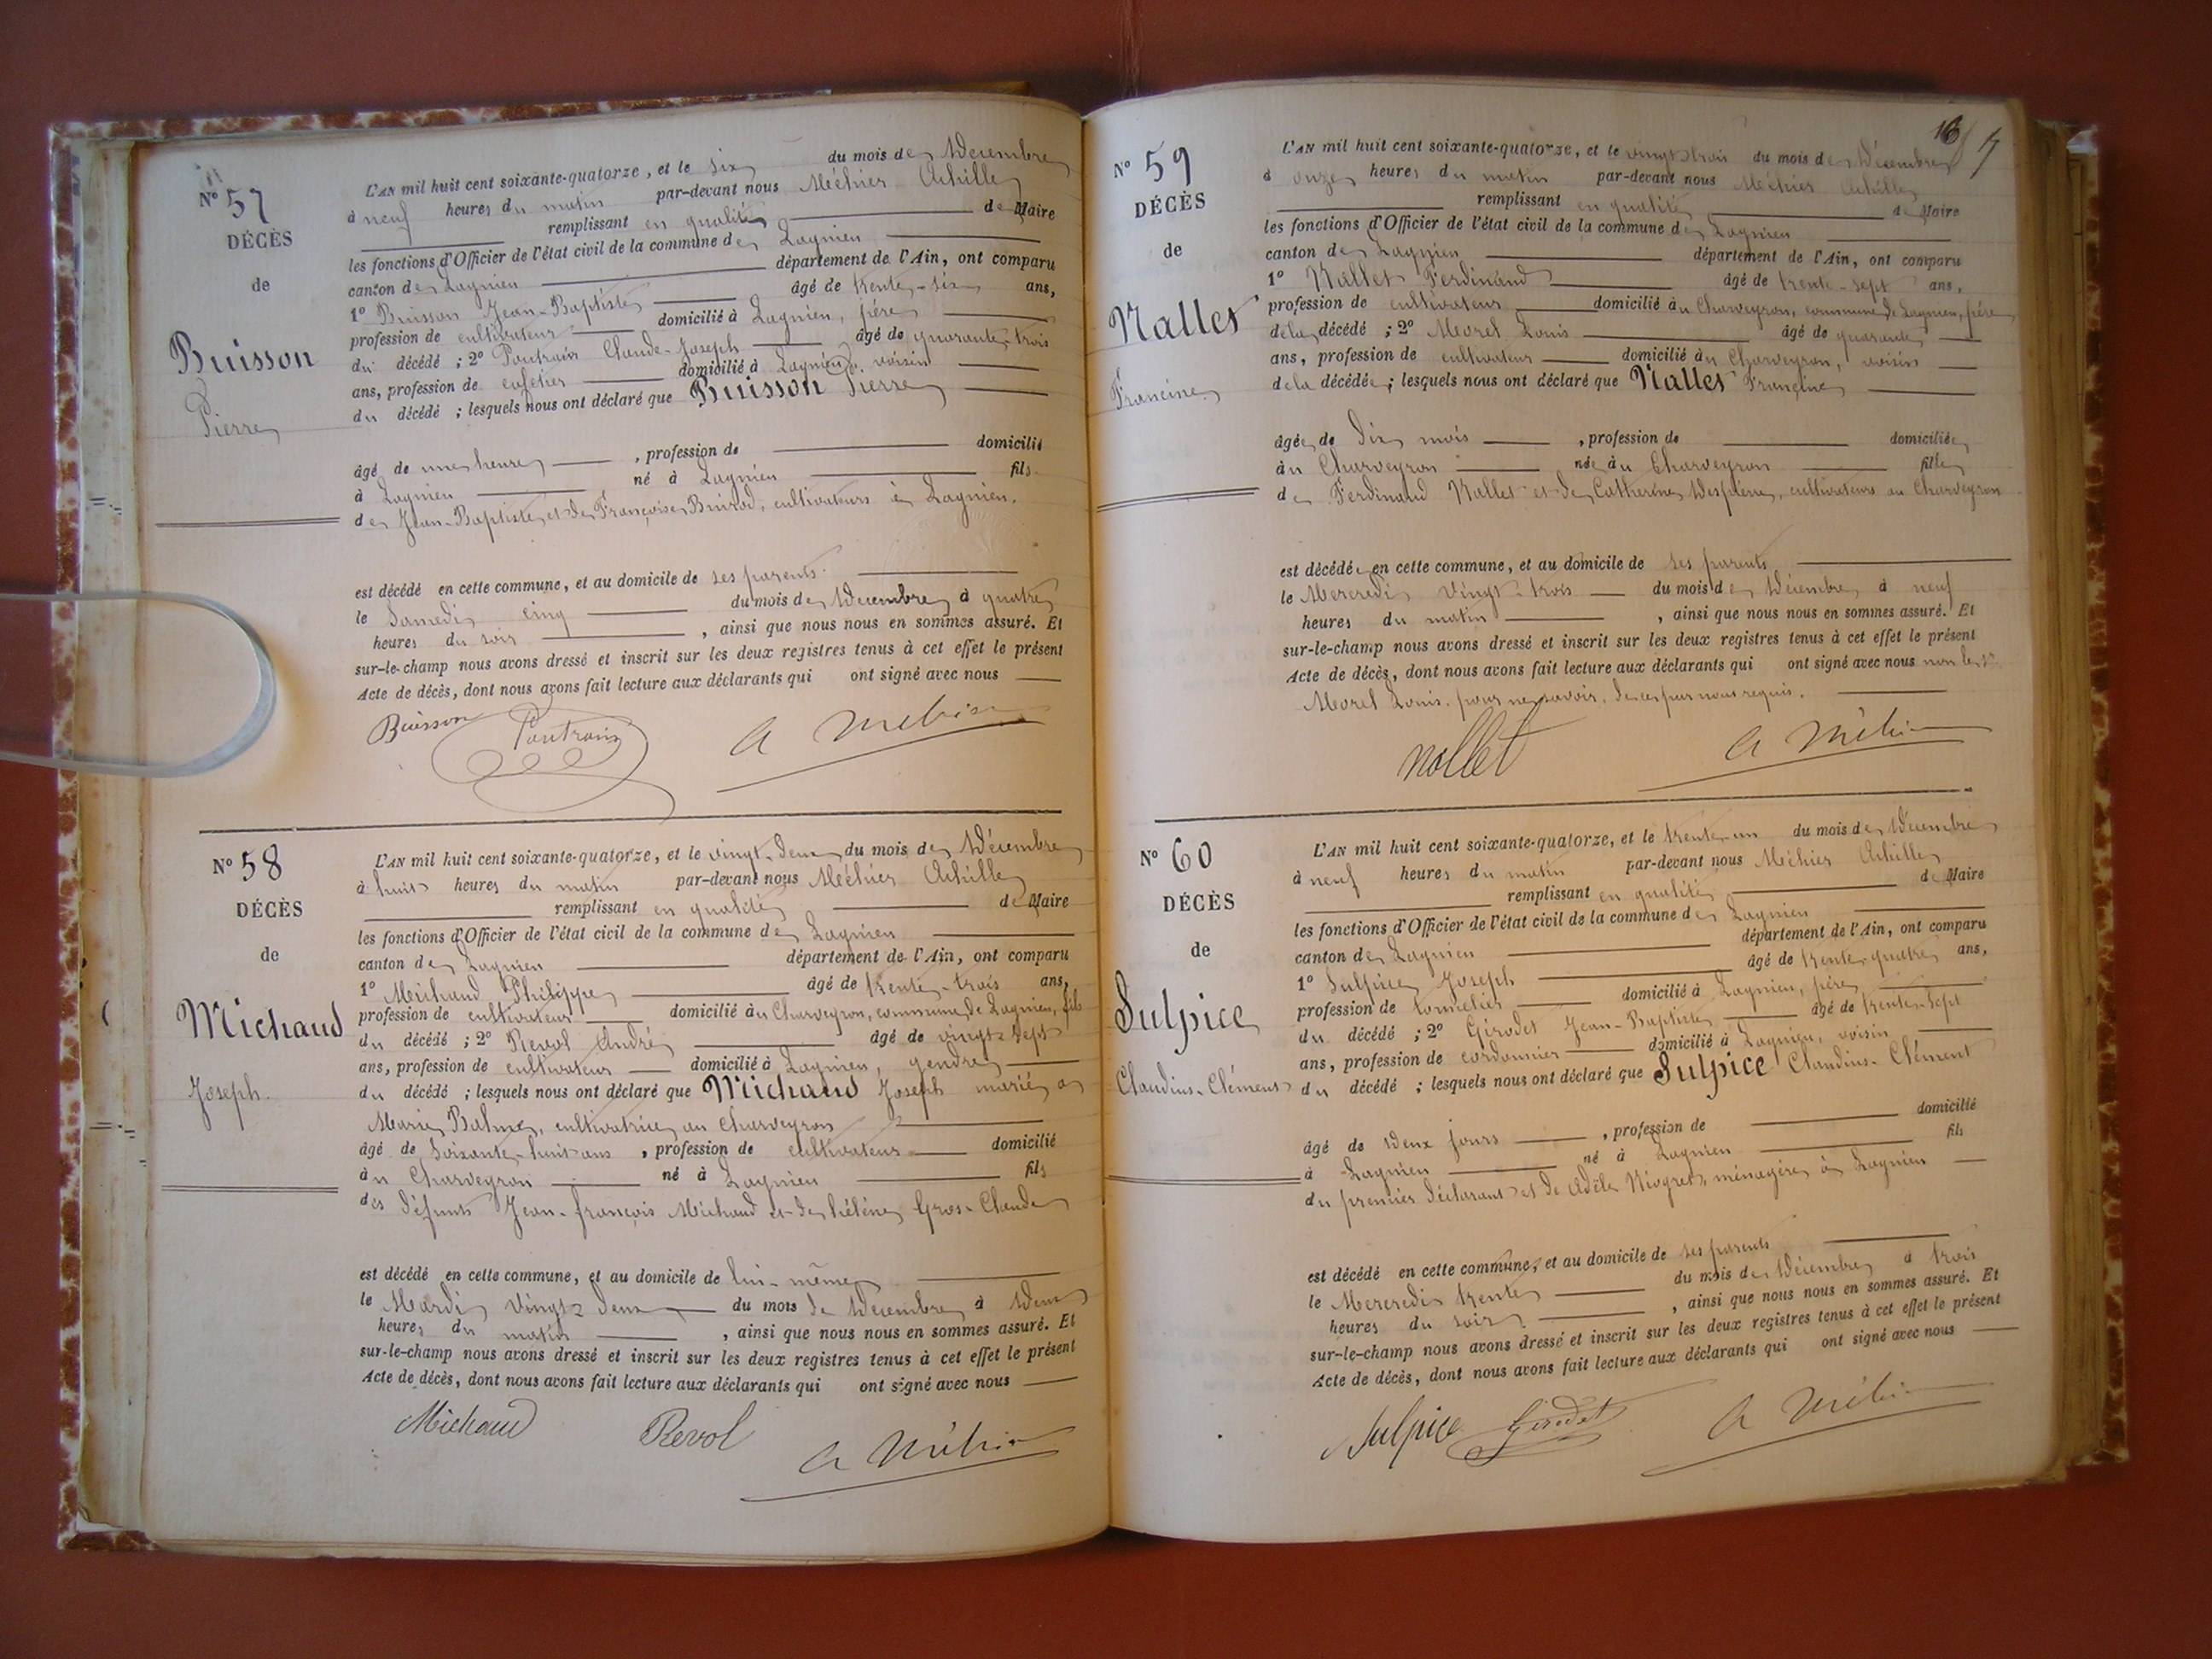 N° 57
DÉCÈS
de
Buisson
Pierre
L'AN mil huit cent soixante-quatorze, et le six du mois de Décembre
à neuf heures du matin par-devant nous Méhier Achille
remplissant en qualité de Maire
les fonctions d'Officier de l'état civil de la commune de Lagnieu
canton de Lagnieu département de l'Ain, ont comparu
1° Buisson Jean-Baptiste âgé de trente-six ans,
profession de cultivateur domicilié à Lagnieu, père
du décédé ; 2° Poutrain Claude-Joseph âgé de quarante-trois
ans, profession de cafetier domicilié à Lagnieu, voisin
du décédé ; lesquels nous ont déclaré que Buisson Pierre
âgé de une heure , profession de domicilié
à Lagnieu né à Lagnieu fils
de Jean-Baptiste et de Françoise Buirod, cultivateurs à Lagnieu.
est décédé en cette commune, et au domicile de ses parents.
le Samedi cinq du mois de Décembre à quatre
heures du soir , ainsi que nous nous en sommes assuré. Et
sur-le-champ nous avons dressé et inscrit sur les deux registres tenus à cet effet le présent
Acte de décès, dont nous avons fait lecture aux déclarants qui ont signé avec nous
Buisson Poutrain A Méhier
N° 58
DÉCÈS
de
Michaud
Joseph.
L'AN mil huit cent soixante-quatorze, et le vingt-deux du mois de Décembre
à huit heures du matin par-devant nous Méhier Achille
remplissant en qualité de Maire
les fonctions d'Officier de l'état civil de la commune de Lagnieu
canton de Lagnieu département de l'Ain, ont comparu
1° Michaud Philippe âgé de trente-trois ans,
profession de cultivateur domicilié au Charveyron, commune de Lagnieu, fils
du décédé ; 2° Revol André âgé de vingt-sept
ans, profession de cultivateur domicilié à Lagnieu, gendre
du décédé ; lesquels nous ont déclaré que Michaud Joseph marié à
Marie Balme, cultivatrice au Charveyron
âgé de soixante-huit ans , profession de cultivateur domicilié
au Charveyron né à Lagnieu fils
des défunts Jean-françois Michaud et de hélène Gros-Claude
est décédé en cette commune, et au domicile de lui-même
le Mardi vingt-deux du mois de Décembre à deux
heures du matin , ainsi que nous nous en sommes assuré. Et
sur-le-champ nous avons dressé et inscrit sur les deux registres tenus à cet effet le présent
Acte de décès, dont nous avons fait lecture aux déclarants qui ont signé avec nous
Michaud Revol A Méhier
N° 59
DÉCÈS
de
Nallet
Francine
L'AN mil huit cent soixante-quatorze, et le vingt-trois du mois de Décembre
à onze heures du matin par-devant nous Méhier Achille
remplissant en qualité de Maire
les fonctions d'Officier de l'état civil de la commune de Lagnieu
canton de Lagnieu département de l'Ain, ont comparu
1° Nallet Ferdinand âgé de trente-sept ans,
profession de cultivateur domicilié au Charveyron, commune de Lagnieu, père
de la décédé ; 2° Morel Louis âgé de quarante
ans, profession de cultivateur domicilié au Charveyron, voisin
de la décédée ; lesquels nous ont déclaré que Nallet Francine
âgée de dix mois , profession de domiciliée
au Charveyron née au Charveyron fille
de Ferdinand Nallet et de Catherine, cultivateurs au Charveyron
est décédée en cette commune, et au domicile de ses parents
le Mercredi vingt-trois du mois de Décembre à neuf
heures du matin , ainsi que nous nous en sommes assuré. Et
sur-le-champ nous avons dressé et inscrit sur les deux registres tenus à cet effet le présent
Acte de décès, dont nous avons fait lecture aux déclarants qui ont signé avec nous non le sr
Morel Louis, pour ne savoir, de ce par nous requis.
nallet A Méhier
N° 60
DÉCÈS
de
Sulpice
Claudius-Clément
L'AN mil huit cent soixante-quatorze, et le trente-un du mois de Décembre
à neuf heures du matin par-devant nous Méhier Achille
remplissant en qualité de Maire
les fonctions d'Officier de l'état civil de la commune de Lagnieu
canton de Lagnieu département de l'Ain, ont comparu
1° Sulpice Joseph âgé de trente-quatre ans,
profession de tonnelier domicilié à Lagnieu, père
du décédé ; 2° Girodet Jean-Baptiste âgé de trente-sept
ans, profession de cordonnier domicilié à Lagnieu, voisin
du décédé ; lesquels nous ont déclaré que Sulpice Claudius-Clément
âgé de deux jours , profession de domicilié
à Lagnieu né à Lagnieu fils
du premier déclarant et de Adèle Niogret, ménagère à Lagnieu
est décédé en cette commune, et au domicile de ses parents
le Mercredi trente du mois de Décembre à trois
heures du soir , ainsi que nous nous en sommes assuré. Et
sur-le-champ nous avons dressé et inscrit sur les deux registres tenus à cet effet le présent
Acte de décès, dont nous avons fait lecture aux déclarants qui ont signé avec nous
Sulpice Girodet A Méhier